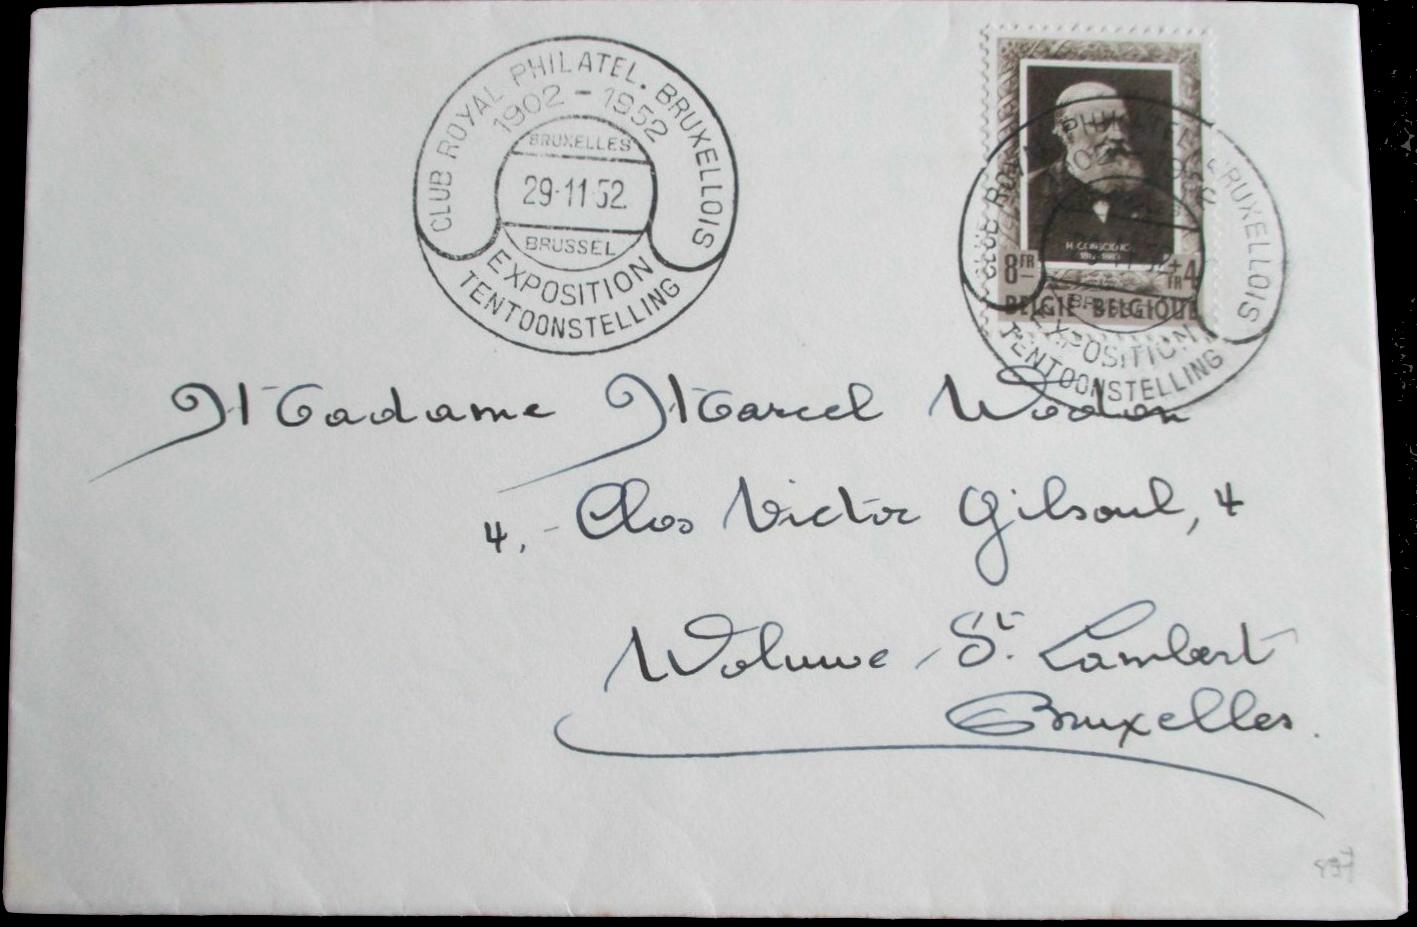 CLUB ROYAL PHILATEL. BRUXELLOIS
1902 - 1952
BRUXELLES
29-11 52
BRUSSEL
EXPOSITION
TENTOONSTELLING
H. CONSCIENCE
8 FR + 4 FR
BELGIE-BELGIQUE
CLUB ROYAL PHILATEL. BRUXELLOIS
EXPOSITION
TENTOONSTELLING
Madame Marcel Wodon
4, - Clos Victor Gilsoul, 4
Woluwe St. Lambert
Bruxelles.